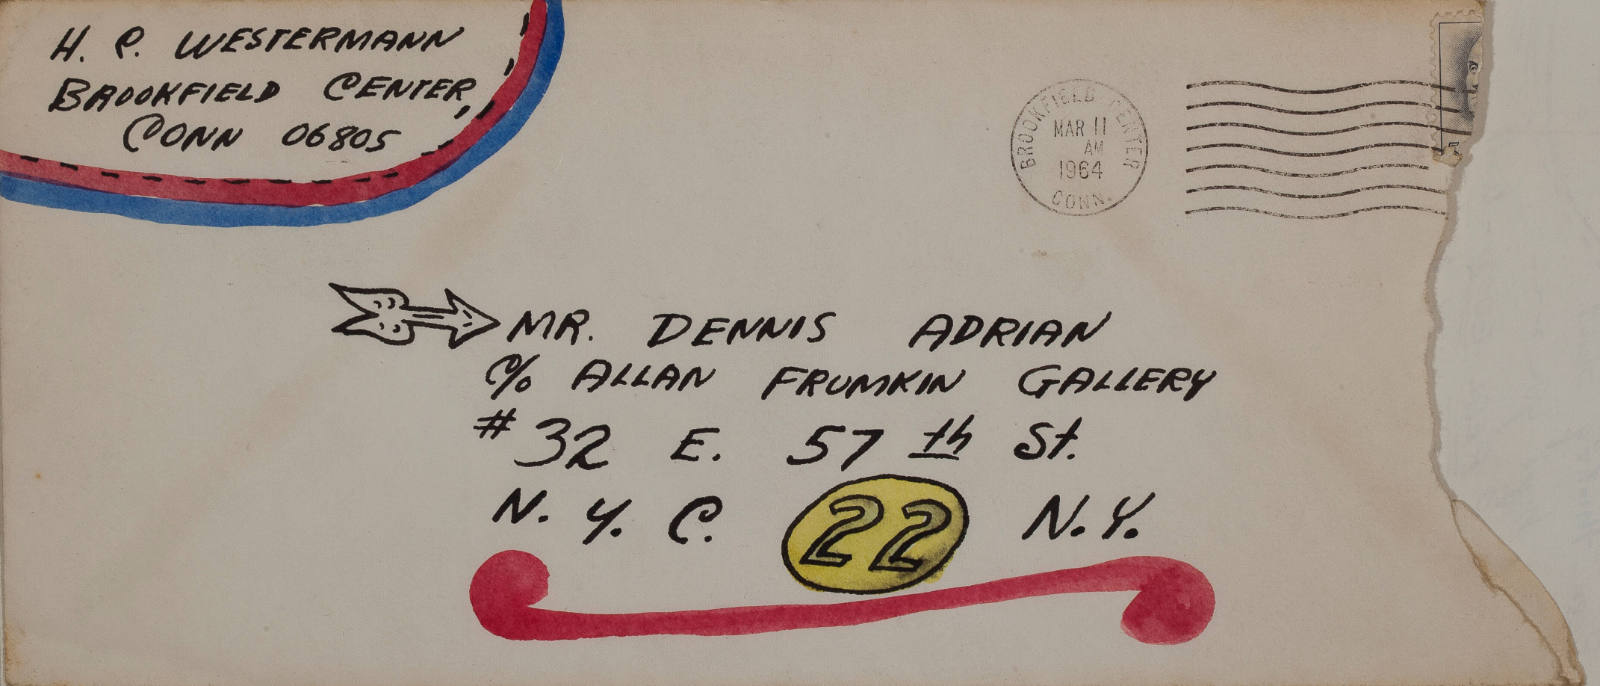 H. C. WESTERMANN
BROOKFIELD CENTER,
CONN 06805
BROOKFIELD CENTER
MAR 11
AM
1964
CONN.
MR. DENNIS ADRIAN
C/o ALLAN FRUMKIN GALLERY
#32 E. 57th St.
N.Y.C. 22 N.Y.